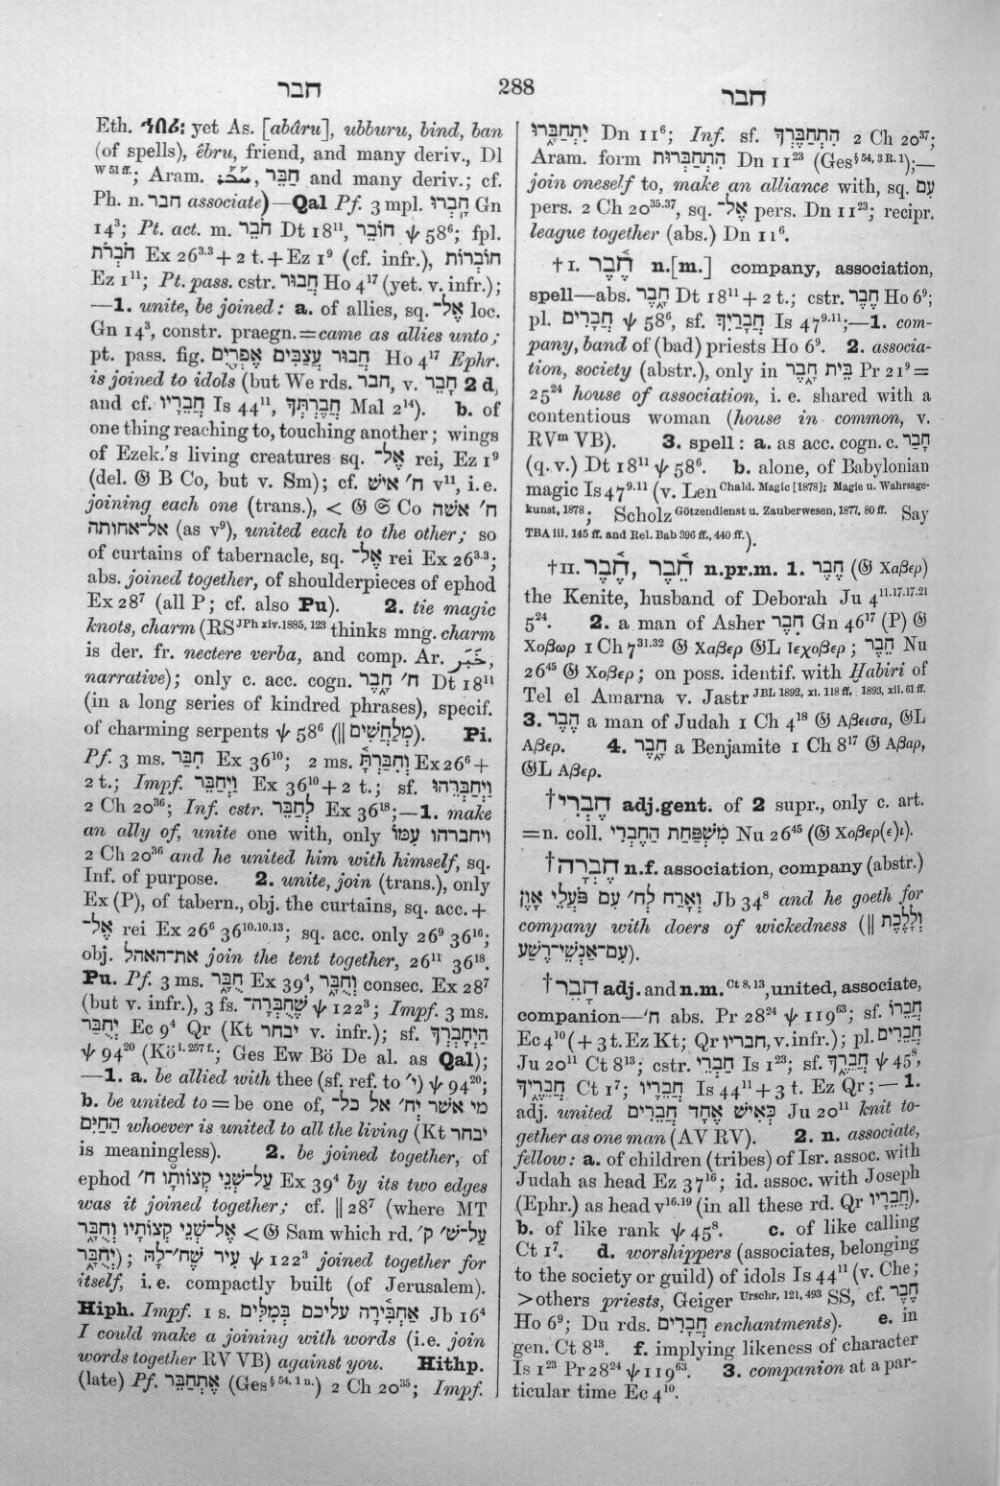 חבר 288 חבר
Eth. ኀበረ: yet As. [abâru], ubburu, bind, ban
(of spells), êbru, friend, and many deriv., Dl
W 51 ff.; Aram. חַבֵּר, and many deriv.; cf.
Ph. n. חבר associate)—Qal Pf. 3 mpl. חָבְרוּ Gn
14³; Pt. act. m. חֹבֵר Dt 18¹¹, חוֹבֵר ψ 58⁶; fpl.
חֹבְרֹת Ex 26³·³ + 2 t. + Ez 1⁹ (cf. infr.), חוֹבְרוֹת
Ez 1¹¹; Pt. pass. cstr. חֲבוּר Ho 4¹⁷ (yet. v. infr.);
—1. unite, be joined: a. of allies, sq. אֶל־ loc.
Gn 14³, constr. praegn. = came as allies unto;
pt. pass. fig. חֲבוּר עֲצַבִּים אֶפְרָיִם Ho 4¹⁷ Ephr.
is joined to idols (but We rds. חבר, v. חָבֵר 2 d,
and cf. חֲבֵרָיו Is 44¹¹, חֲבֶרְתְּךָ Mal 2¹⁴). b. of
one thing reaching to, touching another; wings
of Ezek.'s living creatures sq. אֶל־ rei, Ez 1⁹
(del. 𝔊 B Co, but v. Sm); cf. ח׳ אִישׁ v¹¹, i.e.
joining each one (trans.), < 𝔊 𝔖 Co ח׳ אשה
אל־אחותה (as v⁹), united each to the other; so
of curtains of tabernacle, sq. אֶל־ rei Ex 26³·³;
abs. joined together, of shoulderpieces of ephod
Ex 28⁷ (all P; cf. also Pu). 2. tie magic
knots, charm (RS JPh xiv. 1885, 123 thinks mng. charm
is der. fr. nectere verba, and comp. Ar. خَبَر,
narrative); only c. acc. cogn. ח׳ חָבֶר Dt 18¹¹
(in a long series of kindred phrases), specif.
of charming serpents ψ 58⁶ (|| מְלַחֲשִׁים). Pi.
Pf. 3 ms. חִבַּר Ex 36¹⁰; 2 ms. וְחִבַּרְתָּ Ex 26⁶ +
2 t.; Impf. וַיְחַבֵּר Ex 36¹⁰ + 2 t.; sf. וַיְחַבְּרֵהוּ
2 Ch 20³⁶; Inf. cstr. לְחַבֵּר Ex 36¹⁸;—1. make
an ally of, unite one with, only ויחברהו עִמּוֹ
2 Ch 20³⁶ and he united him with himself, sq.
Inf. of purpose. 2. unite, join (trans.), only
Ex (P), of tabern., obj. the curtains, sq. acc. +
אֶל־ rei Ex 26⁶ 36¹⁰·¹⁰·¹³; sq. acc. only 26⁹ 36¹⁶;
obj. את־האהל join the tent together, 26¹¹ 36¹⁸.
Pu. Pf. 3 ms. חֻבָּר Ex 39⁴, וְחֻבָּר consec. Ex 28⁷
(but v. infr.), 3 fs. שֶׁחֻבְּרָה־ ψ 122³; Impf. 3 ms.
יְחֻבַּר Ec 9⁴ Qr (Kt יבחר v. infr.); sf. הַיְחָבְרְךָ
ψ 94²⁰ (Kö i. 257 f.; Ges Ew Bö De al. as Qal);
—1. a. be allied with thee (sf. ref. to י׳) ψ 94²⁰;
b. be united to = be one of, מי אשר יְח׳ אל כל־
הַחַיִּים whoever is united to all the living (Kt יבחר
is meaningless). 2. be joined together, of
ephod עַל־שְׁנֵי קְצוֹותָו ח׳ Ex 39⁴ by its two edges
was it joined together; cf. || 28⁷ (where MT
אֶל־שְׁנֵי קְצוֹתָיו וְחֻבָּר < 𝔊 Sam which rd. עַל־שׁ׳ ק׳
יְחֻבָּר); עִיר שֶׁח׳־לָהּ ψ 122³ joined together for
itself, i.e. compactly built (of Jerusalem).
Hiph. Impf. 1 s. אַחְבִּירָה עליכם בְּמִלִּים Jb 16⁴
I could make a joining with words (i.e. join
words together RV VB) against you. Hithp.
(late) Pf. אֶתְחַבַּר (Ges § 54, 1 n.) 2 Ch 20³⁵; Impf.
יִתְחַבָּרוּ Dn 11⁶; Inf. sf. הִתְחַבֶּרְךָ 2 Ch 20³⁷;
Aram. form הִתְחַבְּרוּת Dn 11²³ (Ges § 54, 3 R. 1);—
join oneself to, make an alliance with, sq. עִם
pers. 2 Ch 20³⁵·³⁷, sq. אֶל־ pers. Dn 11²³; recipr.
league together (abs.) Dn 11⁶.
† I. חֶבֶר n.[m.] company, association,
spell—abs. חָבֶר Dt 18¹¹ + 2 t.; cstr. חֶבֶר Ho 6⁹;
pl. חֲבָרִים ψ 58⁶, sf. חֲבָרַיִךְ Is 47⁹·¹¹;—1. com-
pany, band of (bad) priests Ho 6⁹. 2. associa-
tion, society (abstr.), only in בֵּית חָבֶר Pr 21⁹ =
25²⁴ house of association, i. e. shared with a
contentious woman (house in common, v.
RVm VB). 3. spell: a. as acc. cogn. c. חָבַר
(q. v.) Dt 18¹¹ ψ 58⁶. b. alone, of Babylonian
magic Is 47⁹·¹¹ (v. Len Chald. Magic [1878]; Magie u. Wahrsage-
kunst, 1878; Scholz Götzendienst u. Zauberwesen, 1877, 80 ff. Say
TBA iii. 145 ff. and Rel. Bab 396 ff., 440 ff.).
† II. חֵבֶר, חֶבֶר n.pr.m. 1. חֶבֶר (𝔊 Χαβερ)
the Kenite, husband of Deborah Ju 4¹¹·¹⁷·¹⁷·²¹
5²⁴. 2. a man of Asher חֵבֶר Gn 46¹⁷ (P) 𝔊
Χοβωρ 1 Ch 7³¹·³² 𝔊 Χαβερ 𝔊L Ιεχοβερ; חֵבֶר Nu
26⁴⁵ 𝔊 Χοβερ; on poss. identif. with Ḥabiri of
Tel el Amarna v. Jastr JBL 1892, xi. 118 ff., 1893, xii. 61 ff.
3. חֶבֶר a man of Judah 1 Ch 4¹⁸ 𝔊 Αβεισα, 𝔊L
Αβερ. 4. חָבֶר a Benjamite 1 Ch 8¹⁷ 𝔊 Αβαρ,
𝔊L Αβερ.
† חֶבְרִי adj.gent. of 2 supr., only c. art.
= n. coll. מִשְׁפַּחַת הַחֶבְרִי Nu 26⁴⁵ (𝔊 Χοβερ(ε)ι).
† חֶבְרָה n.f. association, company (abstr.)
וְאָרַח לְח׳ עִם פֹּעֲלֵי אָוֶן Jb 34⁸ and he goeth for
company with doers of wickedness (|| וְלָלֶכֶת
עִם־אַנְשֵׁי־רֶשַׁע).
† חָבֵר adj. and n.m. Ct 8, 13, united, associate,
companion—ח׳ abs. Pr 28²⁴ ψ 119⁶³; sf. חֲבֵרוֹ
Ec 4¹⁰ (+ 3 t. Ez Kt; Qr חבריו, v. infr.); pl. חֲבֵרִים
Ju 20¹¹ Ct 8¹³; cstr. חַבְרֵי Is 1²³; sf. חֲבֵרֶךָ ψ 45⁸,
חֲבֵרֶיךָ Ct 1⁷; חֲבֵרָיו Is 44¹¹ + 3 t. Ez Qr;—1.
adj. united כְּאִישׁ אֶחָד חֲבֵרִים Ju 20¹¹ knit to-
gether as one man (AV RV). 2. n. associate,
fellow: a. of children (tribes) of Isr. assoc. with
Judah as head Ez 37¹⁶; id. assoc. with Joseph
(Ephr.) as head v¹⁶·¹⁹ (in all these rd. Qr חֲבֵרָיו).
b. of like rank ψ 45⁸. c. of like calling
Ct 1⁷. d. worshippers (associates, belonging
to the society or guild) of idols Is 44¹¹ (v. Che;
> others priests, Geiger Urschr. 121, 493 SS, cf. חֶבֶר
Ho 6⁹; Du rds. חֲבָרִים enchantments). e. in
gen. Ct 8¹³. f. implying likeness of character
Is 1²³ Pr 28²⁴ ψ 119⁶³. 3. companion at a par-
ticular time Ec 4¹⁰.